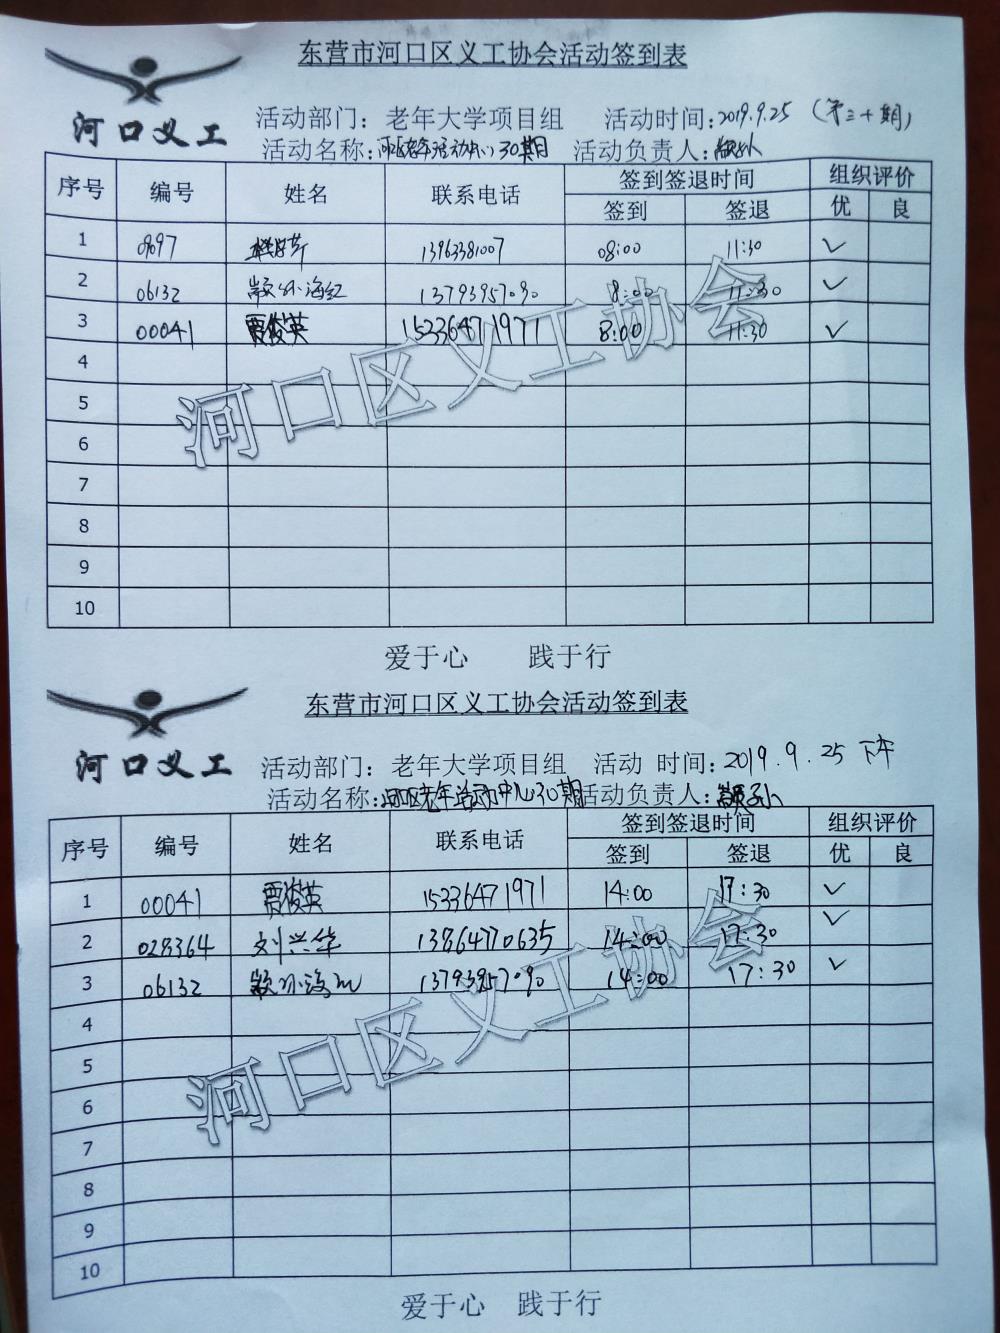 东营市河口区义工协会活动签到表
河口义工
活动部门：老年大学项目组 活动时间：2019.9.25（第三十期）
活动名称：河口区老年活动中心30期 活动负责人：颛孙
序号 编号 姓名 联系电话 签到签退时间 组织评价
签到 签退 优 良
1 0897 13963381007 08:00 11:30 ✓
2 06132 颛孙海红 13793957090 8:00 11:30 ✓
3 00041 贾俊英 15236471971 8:00 11:30 ✓
4
5
6
7
8
9
10
河口区义工协会
爱于心 践于行
东营市河口区义工协会活动签到表
河口义工
活动部门：老年大学项目组 活动 时间：2019.9.25 下午
活动名称：河口区老年活动中心30期 活动负责人：颛孙
序号 编号 姓名 联系电话 签到签退时间 组织评价
签到 签退 优 良
1 00041 贾俊英 15236471971 14:00 17:30 ✓
2 028364 刘兴华 13864770635 14:00 17:30 ✓
3 06132 颛孙海红 13793957090 14:00 17:30 ✓
4
5
6
7
8
9
10
河口区义工协会
爱于心 践于行